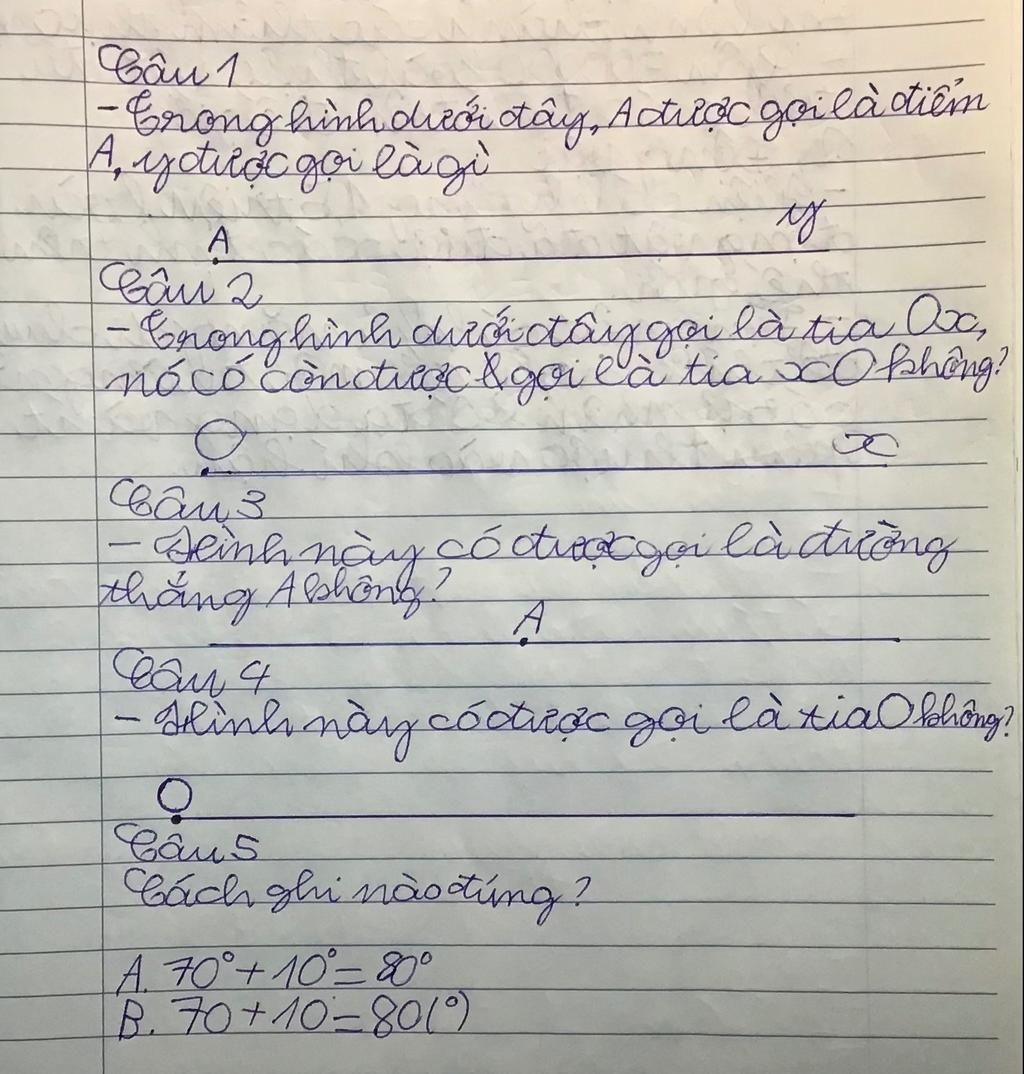 Câu 1
- Trong hình dưới đây, A được gọi là điểm
A, y được gọi là gì
A y
Câu 2
- Trong hình dưới đây gọi là tia Ox,
nó có còn được gọi là tia xO không?
O x
Câu 3
- Hình này có được gọi là đường
thẳng A không?
A
Câu 4
- Hình này có được gọi là tia O không?
O
Câu 5
Cách ghi nào đúng?
A. 70° + 10° = 80°
B. 70 + 10 = 80 (°)